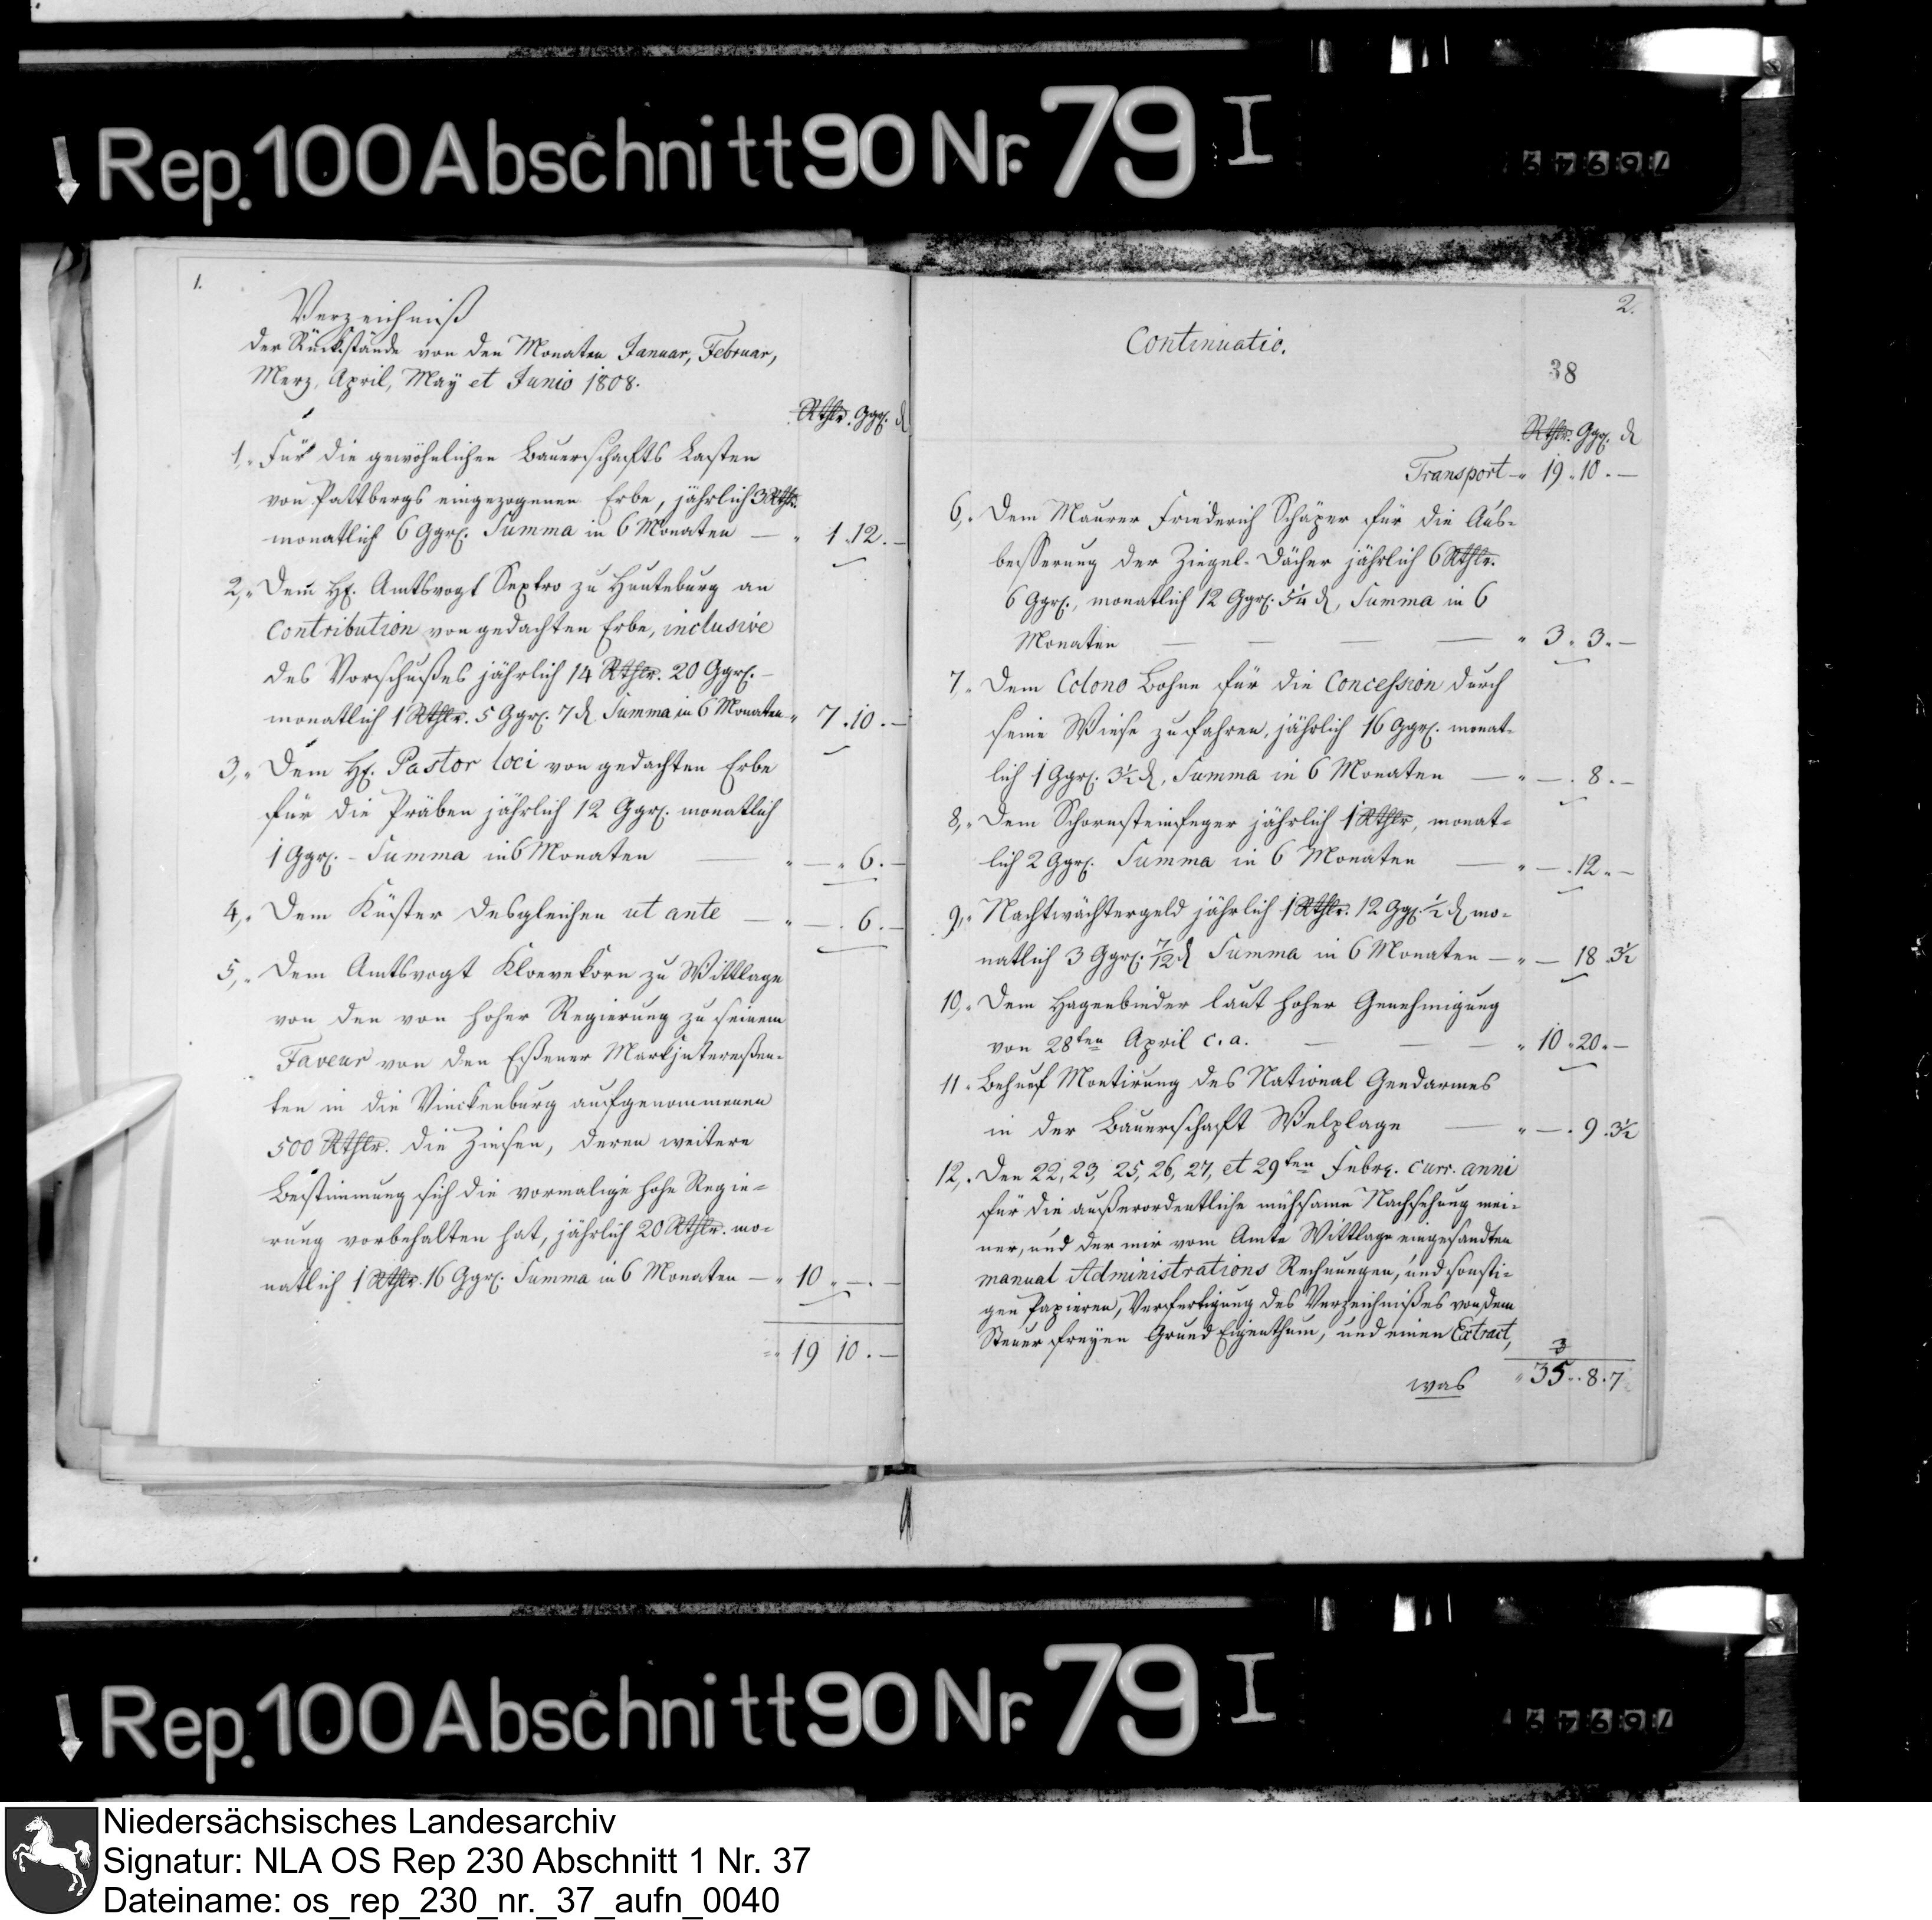 Rep. 100 Abschnitt 90 Nr. 79 I
76949
1.
Verzeichniß
der Rückstände von den Monaten Januar, Februar,
Merz, April, May et Junio 1808.
Rthlr. Ggr. ₰
1., Für die gewöhnlichen Bauerschafts Lasten
von Pattbergs eingezogenen Erbe, jährlich 3 Rthlr.
monatlich 6 Ggr. Summa in 6 Monaten — " 1. 12. —
2., Dem H. Amtsvogt Sextro zu Hunteburg an
Contribution von gedachten Erbe, inclusive
des Vorschußes jährlich 14 Rthlr. 20 Ggr. —
monatlich 1 Rthlr. 5 Ggr. 7 ₰ Summa in 6 Monaten " 7. 10. —
3., Dem H. Pastor loci von gedachten Erbe
für die Präben jährlich 12 Ggr. monatlich
1 Ggr. - Summa in 6 Monaten — " — " 6. —
4., Dem Küster desgleichen ut ante — " — . 6. —
5., Dem Amtsvogt Kloevekorn zu Wittlage
von den von hoher Regierung zu seinem
Faveur von den Eßener Markjntereßen-
ten in die Vinckenburg aufgenommenen
500 Rthlr. die Zinsen, deren weitere
Bestimmung sich die vormalige hohe Regie-
rung vorbehalten hat, jährlich 20 Rthlr. mo-
natlich 1 Rthlr. 16 Ggr. Summa in 6 Monaten — " 10 " — . —
19 10. —
2.
Continuatio.
38
Rthlr. Ggr. ₰
Transport — " 19. 10. —
6., Dem Maurer Friederich Schäper für die Aus-
besserung der Ziegel-Dächer jährlich 6 Rthlr.
6 Ggr., monatlich 12 Ggr. 5¼ ₰, Summa in 6
Monaten — — — — " 3. 3. —
7. Dem Colono Bohne für die Concession durch
seine Wiese zu fahren, jährlich 16 Ggr. monat-
lich 1 Ggr. 3½ ₰, Summa in 6 Monaten — " — . 8. —
8., Dem Schornsteinfeger jährlich 1 Rthlr, monat-
lich 2 Ggr. Summa in 6 Monaten — " — . 12. —
9., Nachtwächtergeld jährlich 1 Rthlr. 12 Ggr. ½ ₰ mo-
natlich 3 Ggr. 7/12 ₰ Summa in 6 Monaten — " — 18 . 3½
10., Dem Hagenbinder laut hoher Genehmigung
von 28ten April c. a. — — — " 10. 20. —
11. Behuef Montirung des National Gendarmes
in der Bauerschaft Welplage — " — . 9. 3½
12., Den 22, 23, 25, 26, 27, et 29ten Febr. curr. anni
für die außerordentliche mühsame Nachsehung mei-
ner, und der mir vom Amte Wittlage eingesandten
manual Administrations Rechnungen, und sonsti-
gen Papieren, Verfertigung des Verzeichnißes von dem
Steuer freyen Grund Eigenthum, und einen Extract,
was
3
" 35. 8. 7
Rep. 100 Abschnitt 90 Nr. 79 I
76949
Niedersächsisches Landesarchiv
Signatur: NLA OS Rep 230 Abschnitt 1 Nr. 37
Dateiname: os_rep_230_nr._37_aufn_0040